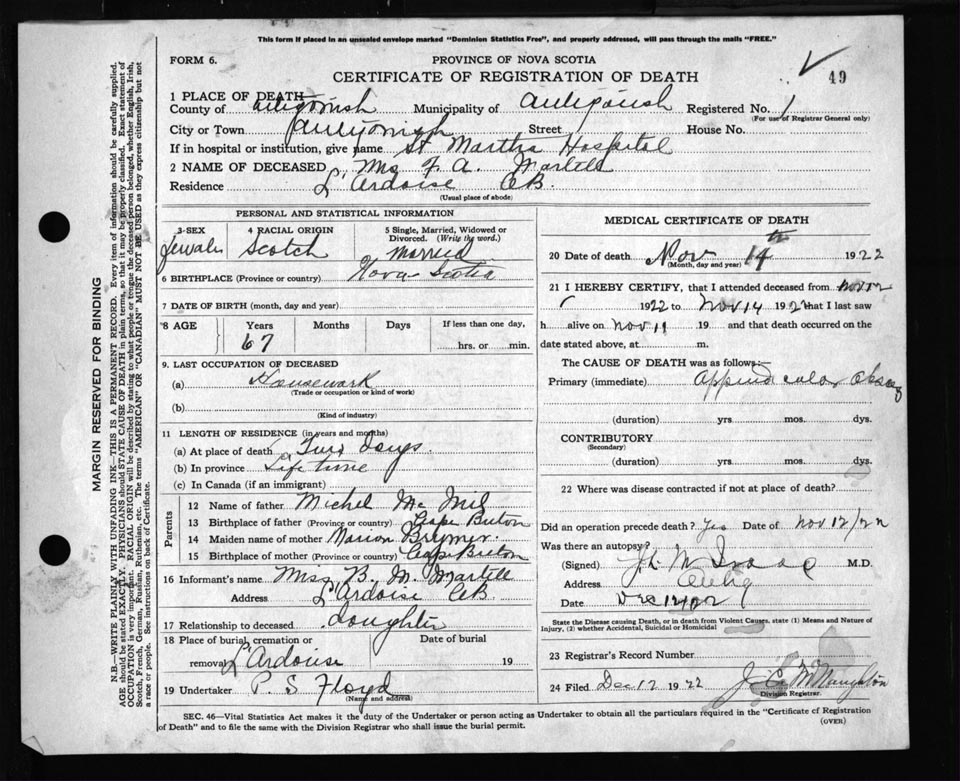 This form if placed in an unsealed envelope marked "Dominion Statistics Free", and properly addressed, will pass through the mails "FREE."
FORM 6.
PROVINCE OF NOVA SCOTIA
CERTIFICATE OF REGISTRATION OF DEATH
49
1 PLACE OF DEATH
County of Antigonish Municipality of Antigonish Registered No. 1
(For use of Registrar General only)
City or Town Antigonish Street House No.
If in hospital or institution, give name St Martha Hospital
2 NAME OF DECEASED Mrs F. A. Martell
Residence L'Ardoise CB.
(Usual place of abode)
PERSONAL AND STATISTICAL INFORMATION
3-SEX 4 RACIAL ORIGIN 5 Single, Married, Widowed or Divorced. (Write the word.)
Female Scotch Married
6 BIRTHPLACE (Province or country) Nova Scotia
7 DATE OF BIRTH (month, day and year)
8 AGE Years Months Days If less than one day,
67 hrs. or min.
9. LAST OCCUPATION OF DECEASED
(a) Housework
(Trade or occupation or kind of work)
(b)
(Kind of industry)
11 LENGTH OF RESIDENCE (in years and months)
(a) At place of death Two Days.
(b) In province Life time
(c) In Canada (if an immigrant)
Parents
12 Name of father Michel
13 Birthplace of father (Province or country) Cape Breton
14 Maiden name of mother Marion
15 Birthplace of mother (Province or country) Cape Breton
16 Informant's name Miss B. M. Martell
Address L'Ardoise CB
17 Relationship to deceased daughter
18 Place of burial, cremation or removal L'Ardoise Date of burial 19
19 Undertaker P. S Floyd
(Name and address)
MEDICAL CERTIFICATE OF DEATH
20 Date of death Nov 14th 1922
(Month, day and year)
21 I HEREBY CERTIFY, that I attended deceased from Nov 12
1922 to Nov 14 1922 that I last saw
h alive on Nov 19 and that death occurred on
date stated above, at m.
The CAUSE OF DEATH was as follows:—
Primary (immediate)
(duration) yrs mos. dys.
CONTRIBUTORY
(Secondary)
(duration) yrs. mos. dys.
22 Where was disease contracted if not at place of death?
Did an operation precede death? Yes Date of Nov 12/22
Was there an autopsy?
(Signed) M.D.
Address Antig
Date Dec 12/22
State the Disease causing Death, or in death from Violent Causes, state (1) Means and Nature of Injury, (2) whether Accidental, Suicidal or Homicidal
23 Registrar's Record Number
24 Filed Dec 12 1922 J. C. McNaughton
Division Registrar.
SEC. 46—Vital Statistics Act makes it the duty of the Undertaker or person acting as Undertaker to obtain all the particulars required in the "Certificate of Registration of Death" and to file the same with the Division Registrar who shall issue the burial permit.
(OVER)
MARGIN RESERVED FOR BINDING
N.B.—WRITE PLAINLY WITH UNFADING INK—THIS IS A PERMANENT RECORD. Every item of information should be carefully supplied.
AGE should be stated EXACTLY. PHYSICIANS should STATE CAUSE OF DEATH in plain terms, so that it may be properly classified. Exact statement of
OCCUPATION is very important. RACIAL ORIGIN will be described by stating to what people or tongue the deceased person belonged, whether English, Irish,
Scotch, French, German, Russian, Ruthenian, etc. The terms "AMERICAN" OR "CANADIAN" MUST NOT BE USED as they express citizenship but not
a race or people. See instructions on back of Certificate.